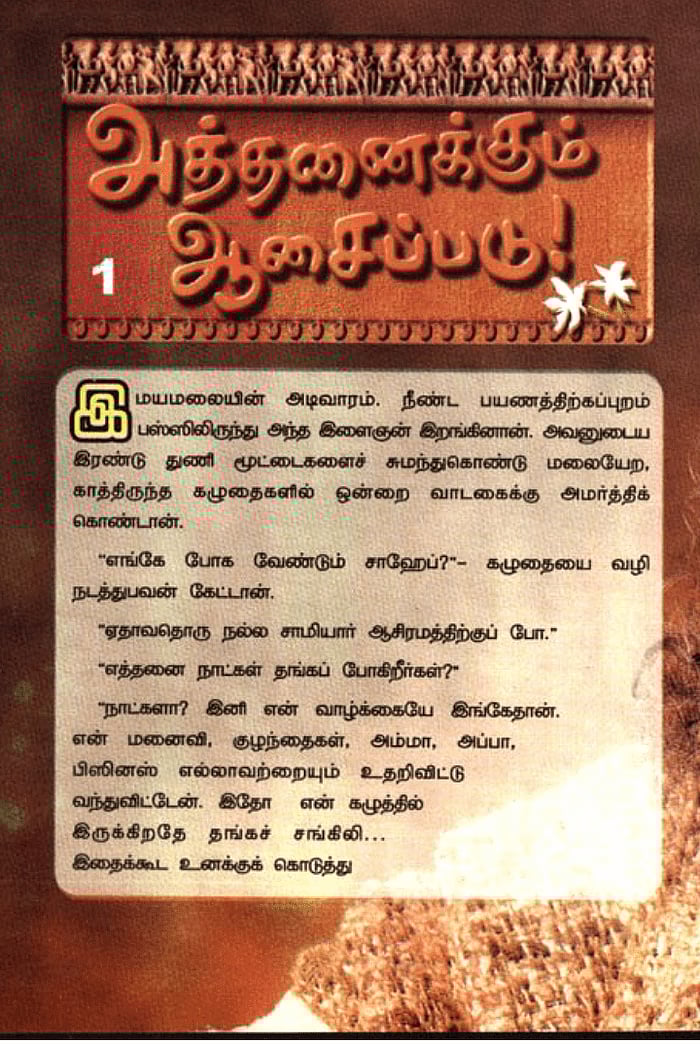 அத்தனைக்கும்
ஆசைப்படு!
1
இமயமலையின் அடிவாரம். நீண்ட பயணத்திற்கப்புறம்
பஸ்ஸிலிருந்து அந்த இளைஞன் இறங்கினான். அவனுடைய
இரண்டு துணி மூட்டைகளைச் சுமந்துகொண்டு மலையேற,
காத்திருந்த கழுதைகளில் ஒன்றை வாடகைக்கு அமர்த்திக்
கொண்டான்.
"எங்கே போக வேண்டும் சாஹேப்?"– கழுதையை வழி
நடத்துபவன் கேட்டான்.
"ஏதாவதொரு நல்ல சாமியார் ஆசிரமத்திற்குப் போ."
"எத்தனை நாட்கள் தங்கப் போகிறீர்கள்?"
"நாட்களா? இனி என் வாழ்க்கையே இங்கேதான்.
என் மனைவி, குழந்தைகள், அம்மா, அப்பா,
பிஸினஸ் எல்லாவற்றையும் உதறிவிட்டு
வந்துவிட்டேன். இதோ என் கழுத்தில்
இருக்கிறதே தங்கச் சங்கிலி...
இதைக்கூட உனக்குக் கொடுத்து